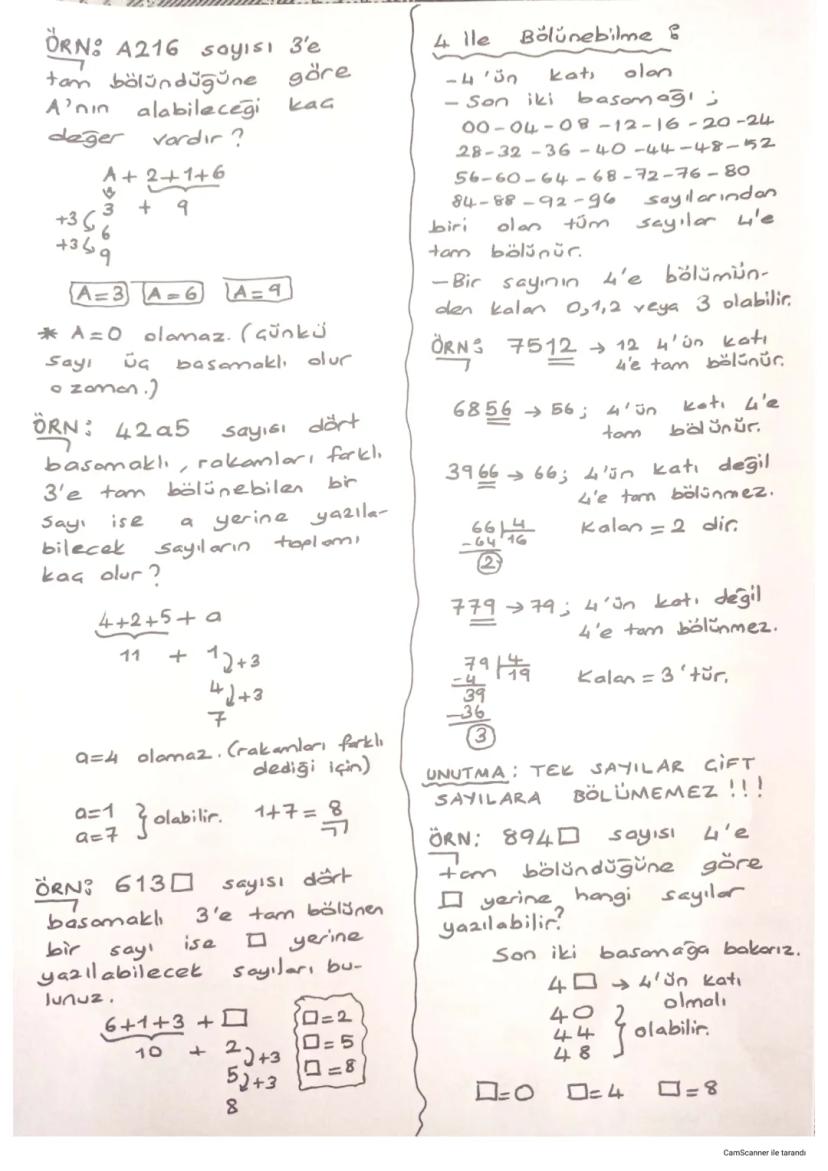 ÖRN: A216 sayısı 3'e
tam bölündüğüne göre
A'nın alabileceği kaç
değer vardır?
A + 2+1+6
3 + 9
+3 6
+3 9
A=3 A=6 A=9
* A=0 olamaz. (Çünkü
sayı üç basamaklı olur
o zaman.)
ÖRN: 42a5 sayısı dört
basamaklı, rakamları farklı
3'e tam bölünebilen bir
sayı ise a yerine yazıla-
bilecek sayıların toplamı
kaç olur?
4+2+5 + a
11 + 1 +3
4 +3
7
a=4 olamaz. (rakamları farklı
dediği için)
a=1
a=7 } olabilir. 1+7=8
ÖRN: 613□ sayısı dört
basamaklı 3'e tam bölünen
bir sayı ise □ yerine
yazılabilecek sayıları bu-
lunuz.
6+1+3 + □
10 + 2 +3
5 +3
8
□=2
□=5
□=8
4 ile Bölünebilme :
-4'ün katı olan
- Son iki basamağı ;
00-04-08-12-16-20-24
28-32-36-40-44-48-52
56-60-64-68-72-76-80
84-88-92-96 sayılarından
biri olan tüm sayılar 4'e
tam bölünür.
-Bir sayının 4'e bölümün-
den kalan 0,1,2 veya 3 olabilir.
ÖRN: 7512 → 12 4'ün katı
4'e tam bölünür.
6856 → 56; 4'ün katı 4'e
tam bölünür.
3966 → 66; 4'ün katı değil
4'e tam bölünmez.
66 | 4 Kalan = 2 dir.
-64 | 16
2
779 → 79; 4'ün katı değil
4'e tam bölünmez.
79 | 4
-4 | 19 Kalan = 3'tür.
39
-36
3
UNUTMA: TEK SAYILAR ÇİFT
SAYILARA BÖLÜMEMEZ !!!
ÖRN: 894□ sayısı 4'e
tam bölündüğüne göre
□ yerine hangi sayılar
yazılabilir?
Son iki basamağa bakarız.
4□ → 4'ün katı
olmalı
40
44 } olabilir.
48
□=0 □=4 □=8
CamScanner ile tarandı